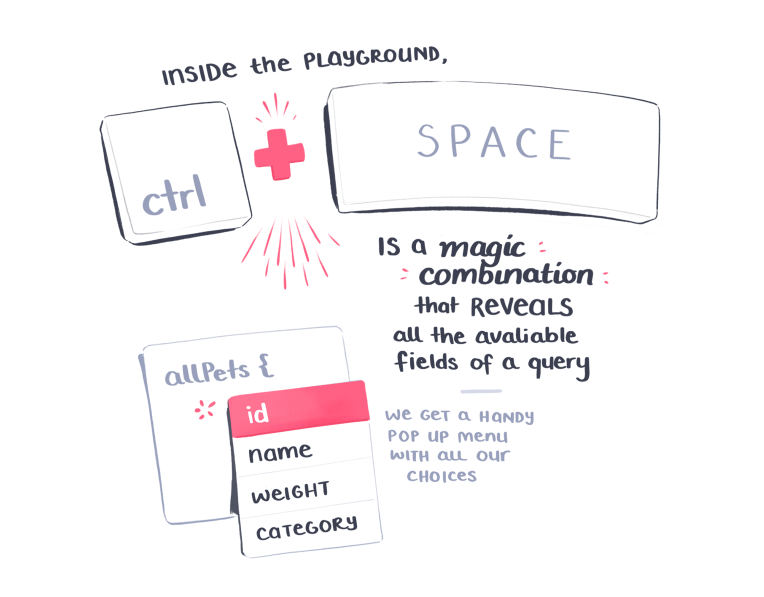 INSIDE the PLAYGROUND,
ctrl
SPACE
IS a magic
combination
that REVEALS
all the avaliable
fields of a query
allPets {
id
name
WEIGHT
CATEGORY
WE GET a HANDY
POP UP menu
WITH all our
CHOICES